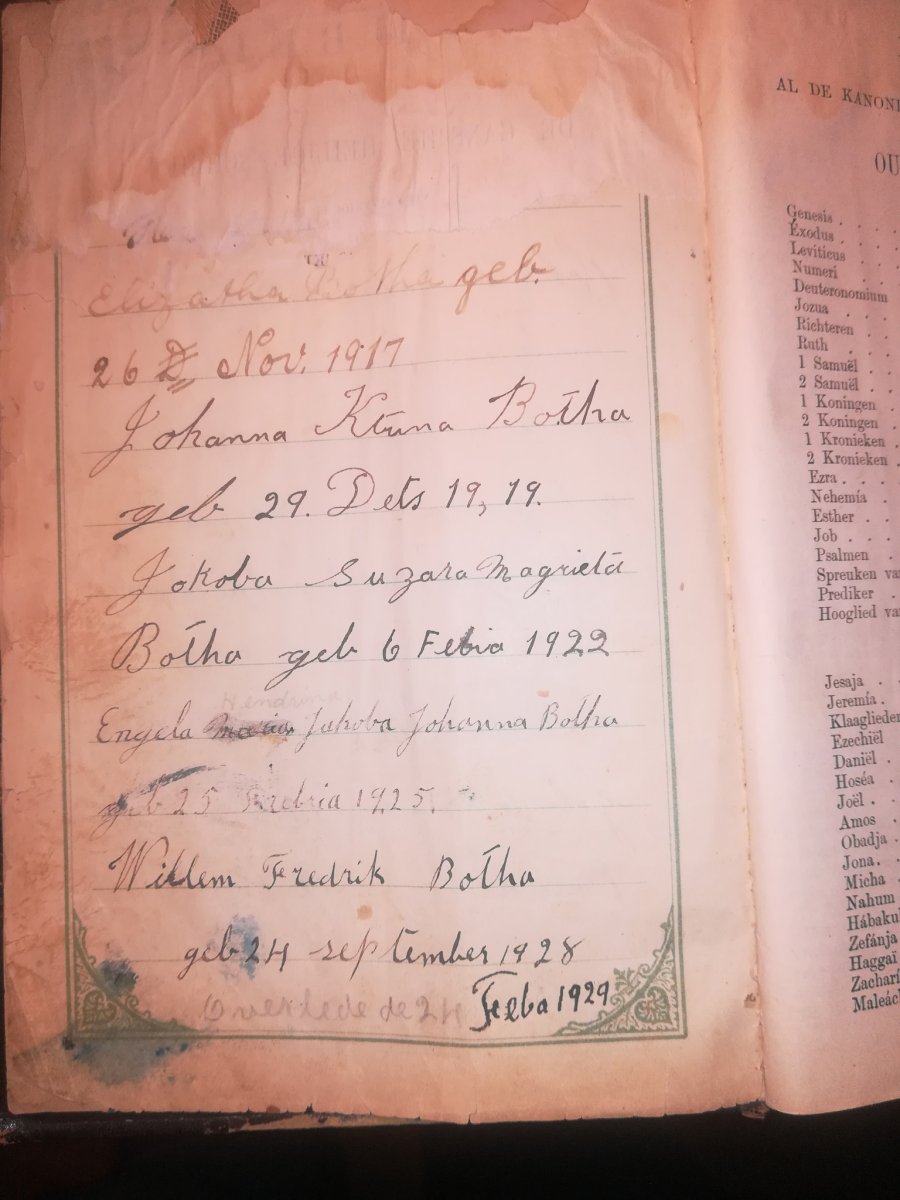 Elizatha Botha geb.
26 D Nov. 1917
Johanna Ktruna Botha
geb 29. Dets 19,19.
Jokoba Suzara Magrieta
Botha geb 6 Febia 1922
Hendrina
Engela Maria Jakoba Johanna Botha
geb 25 Febria 1925.
Willem Fredrik Botha
geb 24 september 1928
Overlede de 24 Feba 1929
AL DE KANONI
OU
Genesis .
Éxodus .
Leviticus
Numeri
Deuteronomium
Jozua
Richteren
Ruth
1 Samuël
2 Samuël
1 Koningen
2 Koningen
1 Kronieken
2 Kronieken
Ezra
Nehemía
Esther
Job
Psalmen
Spreuken va
Prediker
Hooglied va
Jesaja
Jeremía
Klaaglieder
Ezechiël
Daniël
Hoséa
Joël
Amos
Obadja
Jona
Micha
Nahum
Hábakuk
Zefánja
Haggaï
Zacharí
Maleác